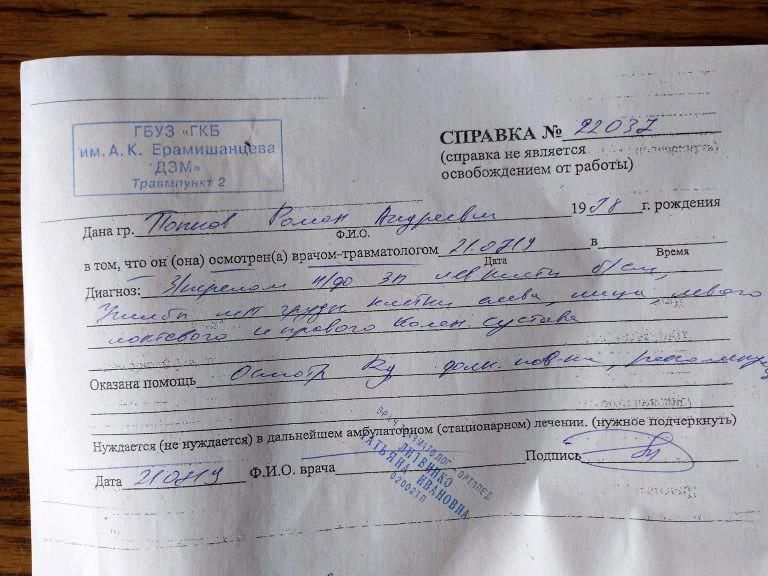 ГБУЗ «ГКБ
им. А. К. Ерамишанцева
ДЗМ»
Травмпункт 2
СПРАВКА № 22037
(справка не является
освобождением от работы)
Дана гр. Роман Андреевич 1978 г. рождения
Ф.И.О.
в том, что он (она) осмотрен(а) врачом-травматологом 21.07.19 в
Дата Время
Диагноз: З/перелом н/ф 3п лев кисти б/см,
Ушибы мт грудн клетки слева, лица, левого
локтевого и правого колен сустава
Оказана помощь Осмотр
Нуждается (не нуждается) в дальнейшем амбулаторном (стационарном) лечении. (нужное подчеркнуть)
ВРАЧ ТРАВМАТОЛОГ ОРТОПЕД
ЛИТВИНКО
ТАТЬЯНА ИВАНОВНА
Дата 210719 Ф.И.О. врача Подпись